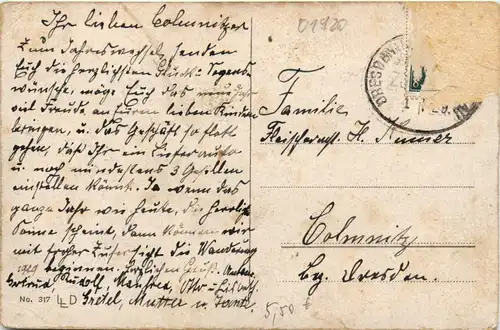 Ihr lieben Colmnitzer
Zum Jahreswechsel senden
Euch die herzlichsten Glück- u. Segens
wünsche, möge Euch das neue Jahr
viel Freude an Euren lieben Kindern
bringen, u. das Geschäft so flott
gehen, daß Ihr ein Lieferauto
u. noch mindestens 3 Gesellen
einstellen könnt. Ja wenn das
ganze Jahr wie heute, die herrliche
Sonne scheint, dann können wir
mit froher Zuversicht die Wanderung
1929 beginnen. Herzlichen Gruß
Rudolf, Manfred, Otto u. Lisbeth
Gretel, Mutter u. Tante
No. 317 LLD
01920
DRESDEN
Familie
Fleischermstr. H.
Colmnitz
Bz. Dresden.
5,50 €